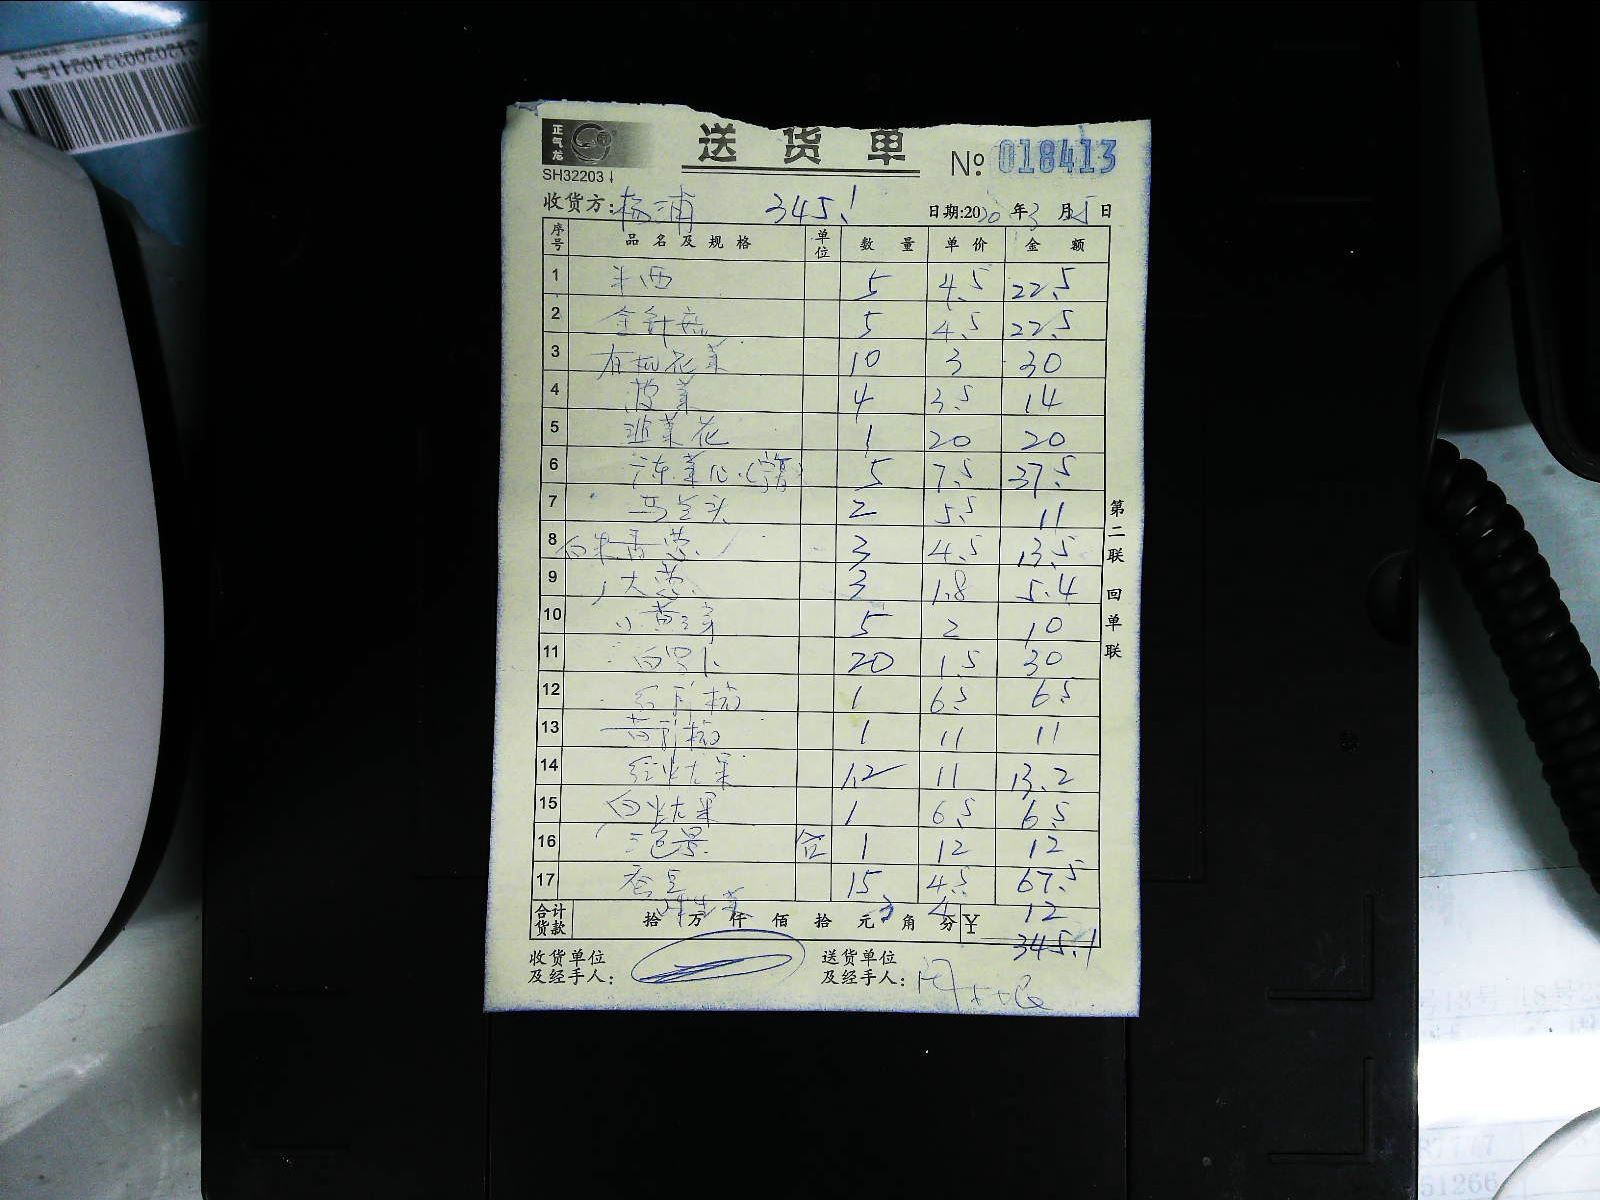 正气龙
送货单
SH32203
№ 018413
收货方: 杨浦 345.1 日期:2020年3月5日
序号 品名及规格 单位 数量 单价 金额
1 半西 5 4.5 22.5
2 金针菇 5 4.5 22.5
3 有机花菜 10 3 30
4 菠菜 4 3.5 14
5 韭菜花 1 20 20
6 5 7.5 37.5
7 马兰头 2 5.5 11
8 3 4.5 13.5
9 大葱 3 1.8 5.4
10 小黄芽 5 2 10
11 白罗卜 20 1.5 30
12 1 6.5 6.5
13 1 11 11
14 红火龙果 1.2 11 13.2
15 白火龙果 1 6.5 6.5
16 三色 1 12 12
17 蚕豆 15 4.5 67.5
生菜 3 4 12
合计货款 拾 万 仟 佰 拾 元 角 分 ¥ 345.1
收货单位及经手人: 送货单位及经手人:
第二联 回单联